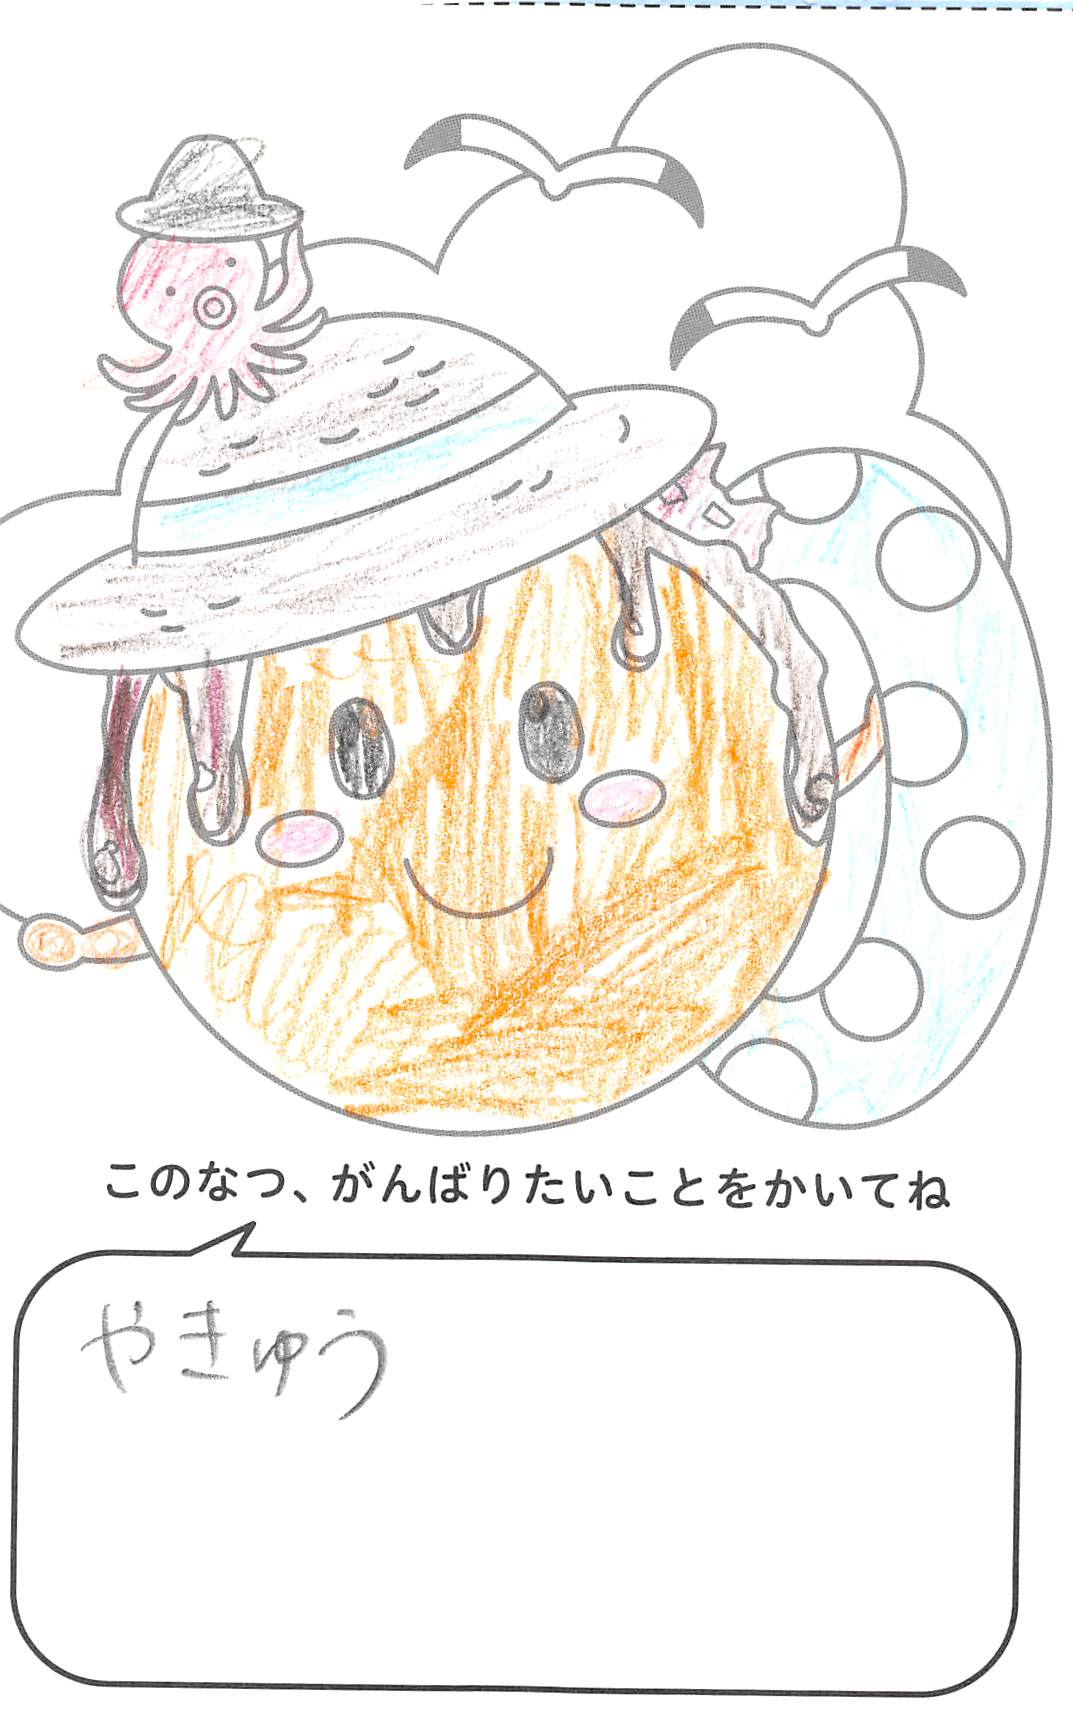 このなつ、がんばりたいことをかいてね
やきゅう